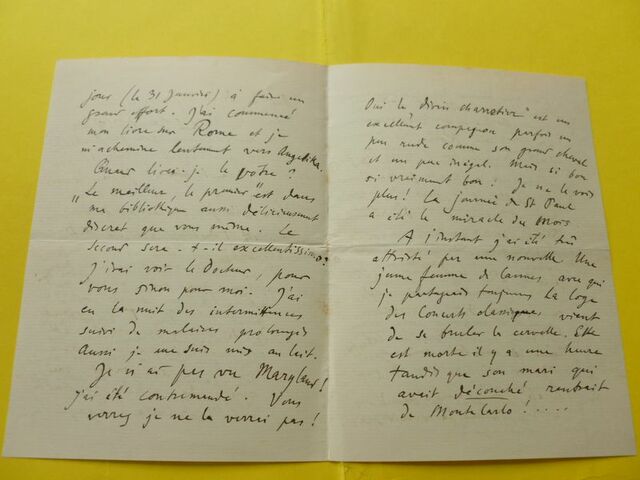 jours (le 31 Janvier) à faire un
grand effort. J'ai commencé
mon livre sur Rome et je
m'achemine lentement vers Angelika.
Quand lirai-je le vôtre ?
"Le meilleur, le premier" est dans
ma bibliothèque aussi délicieusement
discret que vous même. Le
second sera-t-il excellentissime ?
J'irai voir le Docteur, pour
vous sinon pour moi. J'ai
eu la nuit des intermittences
suivi de malaises prolongés
aussi je me suis mis au lait.
Je n'ai pas vu Maryland !
j'ai été contremandé. Vous
verrez je ne la verrai pas !
Oui le divin charretier" est un
excellent compagnon parfois un
peu rude comme son grand cheval
et un peu inégal. Mais si bon
si vraiment bon ! Je ne le vois
plus ! La journée de St Paul
a été le miracle du mois
A l'instant j'ai été très
attristé par une nouvelle Une
jeune femme de Cannes avec qui
je partageais toujours la loge
des Concerts classiques vient
de se bruler la cervelle. Elle
est morte il y a une heure
tandis que son mari qui
avait découché, rentrait
de Monte Carlo ! .....